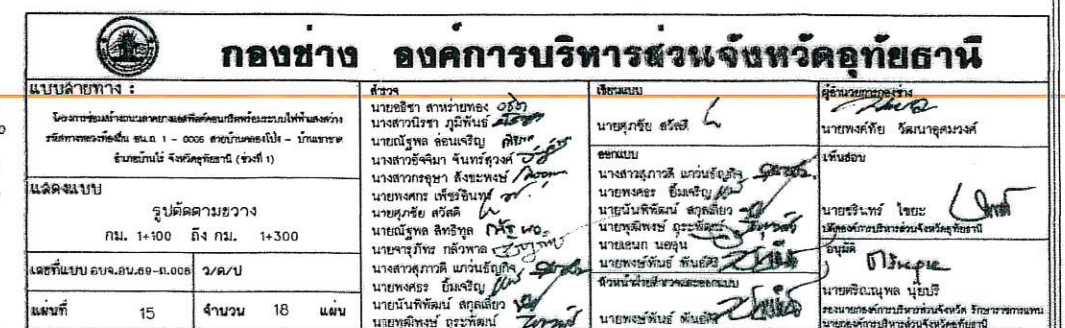 กองช่าง องค์การบริหารส่วนจังหวัดอุทัยธานี
แบบสายทาง :
โครงการซ่อมสร้างถนนลาดยางแอสฟัลต์คอนกรีตพร้อมระบบไฟฟ้าแสงสว่าง
รหัสทางหลวงท้องถิ่น อน.ถ 1 - 0006 สายบ้านคลองโป่ง - บ้านเขาราช
อำเภอบ้านไร่ จังหวัดอุทัยธานี (ช่วงที่ 1)
แสดงแบบ
รูปตัดตามขวาง
กม. 1+100 ถึง กม. 1+300
เลขที่แบบ อบจ.อน.69-ถ.006 ว/ด/ป
แผ่นที่ 15 จำนวน 18 แผ่น
สำรวจ
นายอธิชา สาหร่ายทอง
นางสาวนิรชา ภูมิพันธ์
นายณัฐพล อ่อนเจริญ
นางสาวอัจจิมา จันทร์สุวงศ์
นางสาวกรอุษา สังขะพงษ์
นายพงศกร เพ็ชรอินทร์
นายศุภชัย สวัสดิ์
นายณัฐพล สิทธิทูล
นายจารุภัทร กลัวพาล
นางสาวสุภาวดี แกว่นธัญกิจ
นายพงศธร ยิ้มเจริญ
นายนันพิพัฒน์ สกุลเลี่ยว
นายพุฒิพงษ์ ถุระพัฒน์
เขียนแบบ
นายศุภชัย สวัสดิ์
ออกแบบ
นางสาวสุภาวดี แกว่นธัญกิจ
นายพงศธร ยิ้มเจริญ
นายนันพิพัฒน์ สกุลเลี่ยว
นายพุฒิพงษ์ ถุระพัฒน์
นายเอนก นออุ่น
นายพงษ์พันธ์ พันธ์
หัวหน้าฝ่ายสำรวจและออกแบบ
นายพงษ์พันธ์ พันธ์
ผู้อำนวยการกองช่าง
นายพงศ์ทัย วัฒนาอุดมวงศ์
เห็นชอบ
นายชรินทร์ ไชยะ
ปลัดองค์การบริหารส่วนจังหวัดอุทัยธานี
อนุมัติ
นายตริณณุพล นุ้ยปรี
รองนายกองค์การบริหารส่วนจังหวัด รักษาราชการแทน
นายกองค์การบริหารส่วนจังหวัดอุทัยธานี